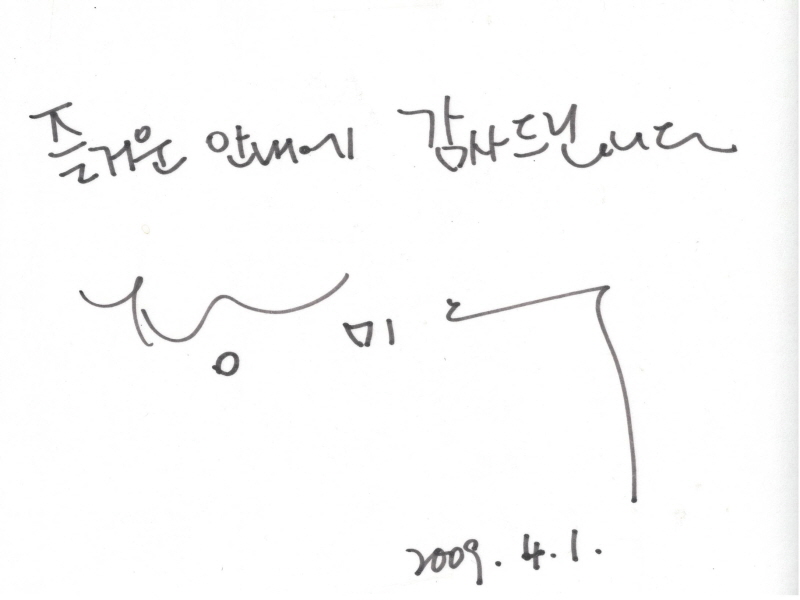 즐거운 안내에 감사드립니다
2009. 4. 1.